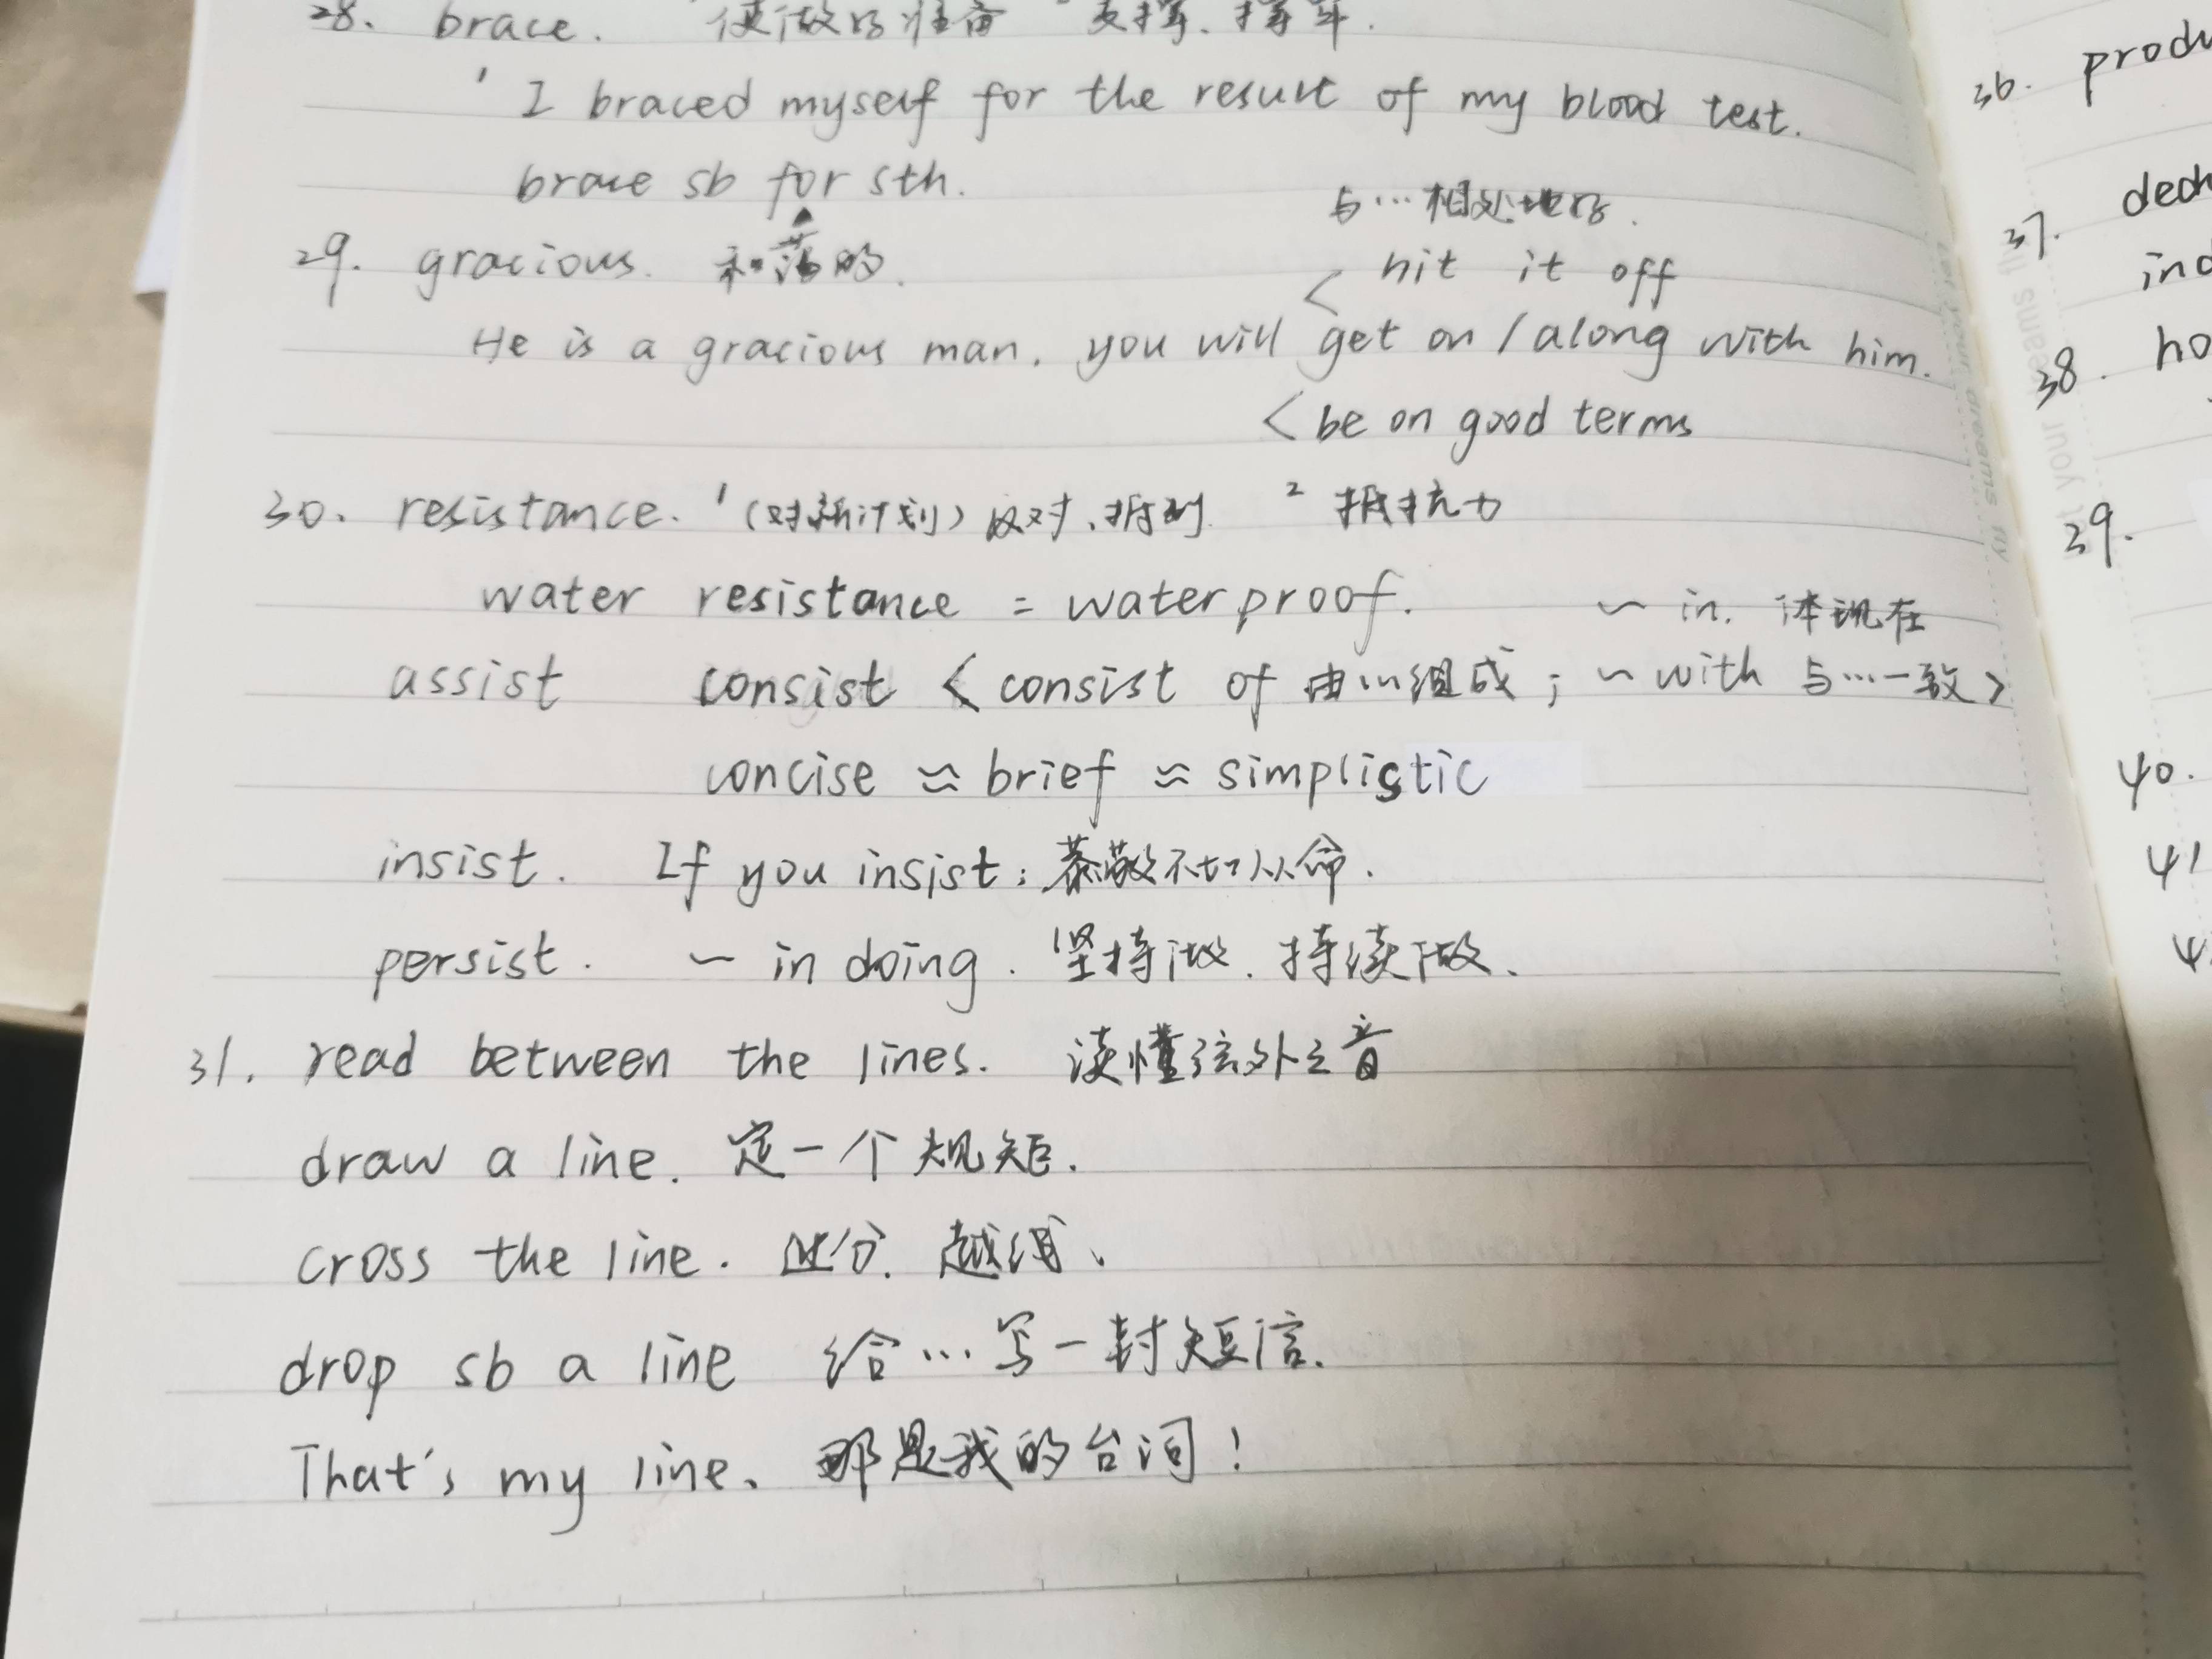 28. brace. 使做好准备 ² 支撑、撑牢.
¹ I braced myself for the result of my blood test.
brace sb for sth.
与…相处地好.
29. gracious. 和蔼的.
< hit it off
He is a gracious man. you will get on / along with him.
< be on good terms
30. resistance. ¹ (对新计划) 反对、拆到 ² 抵抗力
water resistance = waterproof.
~ in. 体现在
assist consist < consist of 由…组成; ~ with 与…一致 >
concise ≈ brief ≈ simplistic
insist. If you insist: 恭敬不如从命.
persist. ~ in doing. 坚持做. 持续做、
31. read between the lines. 读懂弦外之音
draw a line. 定一个规矩.
cross the line. 过分. 越线、
drop sb a line 给…写一封短信.
That's my line. 那是我的台词!
36. produ
37. dedu
ind
38. ho
39.
40.
41
4
Let your dreams fly